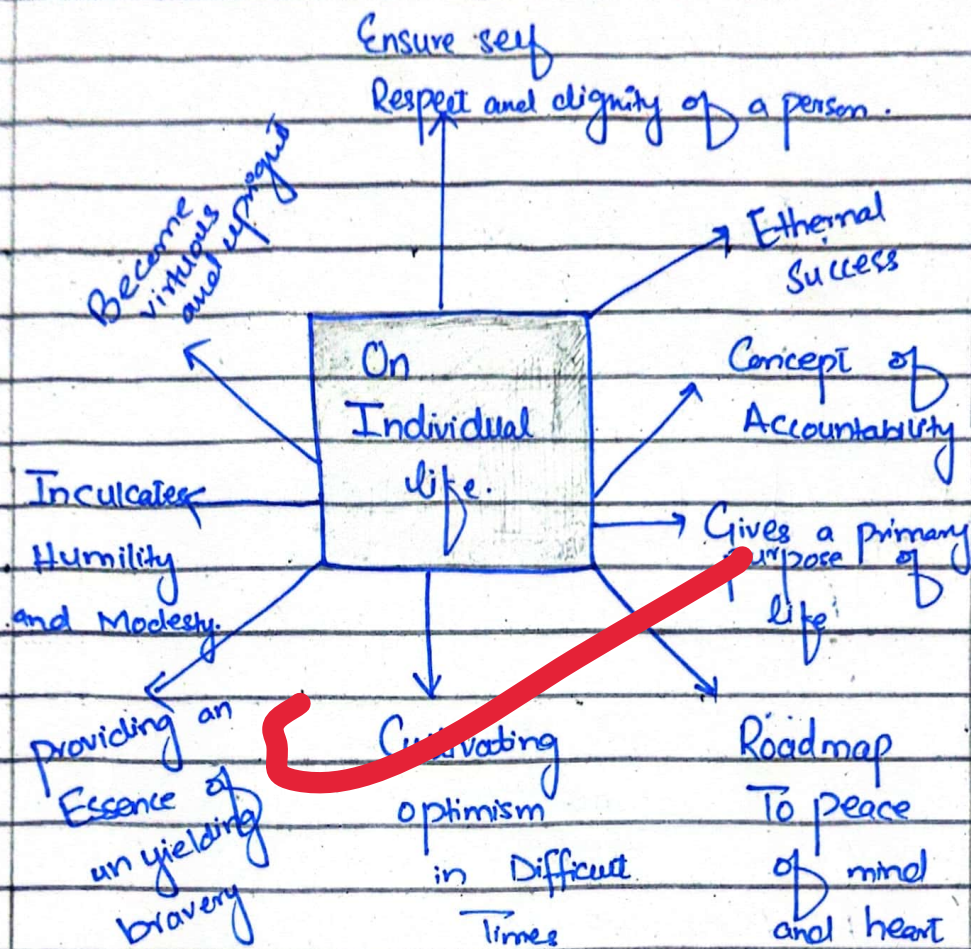 Ensure self
Respect and dignity of a person.
Become
virtuous
and upright
Ethernal
Success
On
Individual
life.
Concept of
Accountability
Inculcates
Humility
and Modesty.
Gives a primary
purpose of
life
providing an
Essence of
un yielding
bravery
Cultivating
optimism
in Difficult
Times
Roadmap
To peace
of mind
and heart